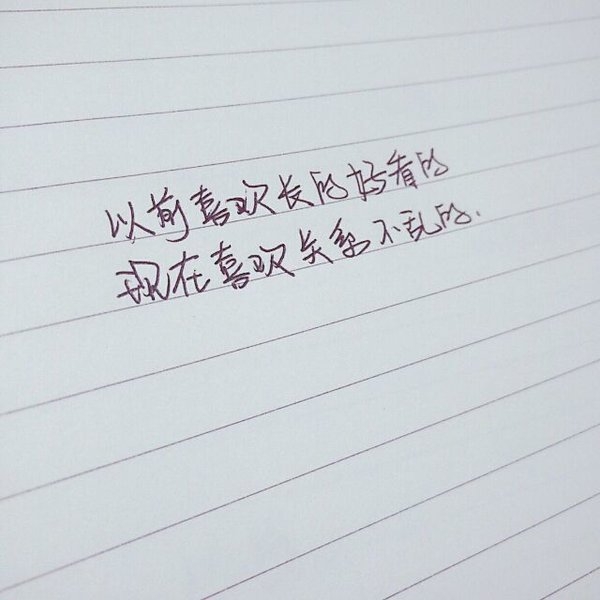 以前喜欢长的好看的
现在喜欢关系不乱的.